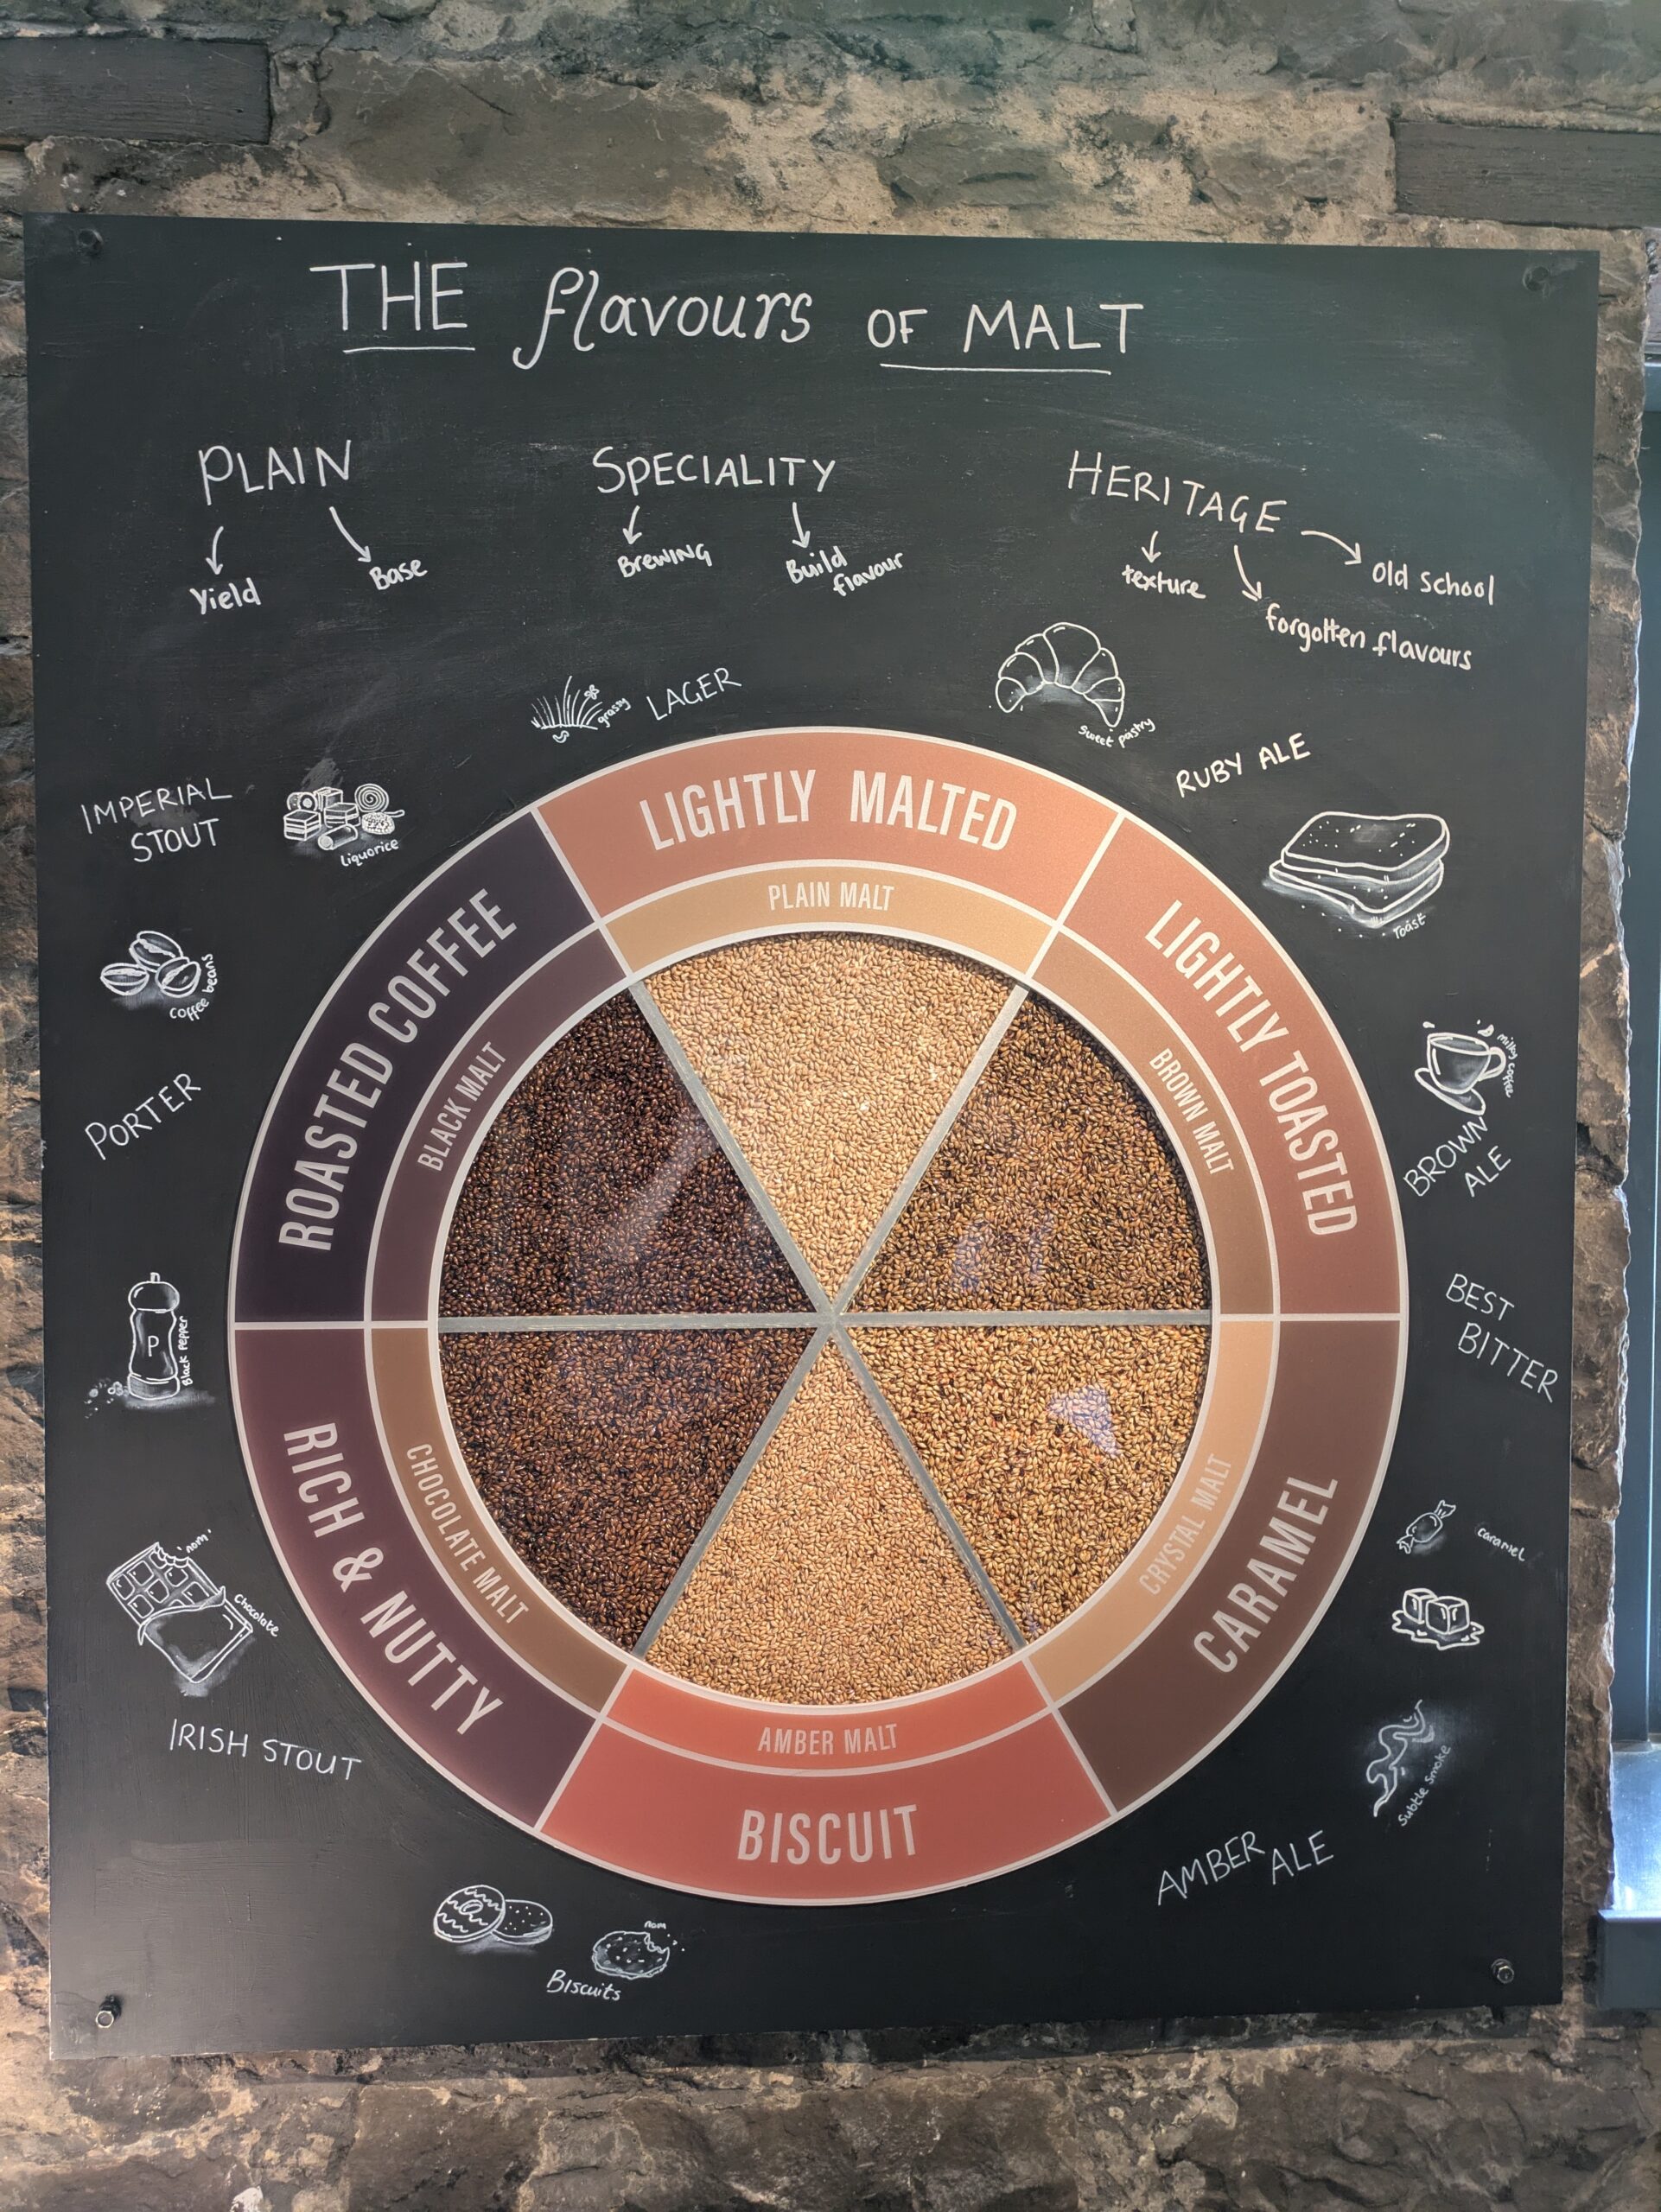 THE flavours OF MALT
PLAIN
Yield
Base
SPECIALITY
Brewing
Build
flavour
HERITAGE
texture
forgotten flavours
old school
grassy
LAGER
sweet pastry
RUBY ALE
Toast
milky coffee
BROWN
ALE
BEST
BITTER
caramel
Subtle smoke
AMBER ALE
Biscuits
nom
IRISH STOUT
Chocolate
nom
P
Black Pepper
PORTER
coffee beans
IMPERIAL
STOUT
liquorice
LIGHTLY MALTED
PLAIN MALT
LIGHTLY TOASTED
BROWN MALT
CARAMEL
CRYSTAL MALT
BISCUIT
AMBER MALT
RICH & NUTTY
CHOCOLATE MALT
ROASTED COFFEE
BLACK MALT